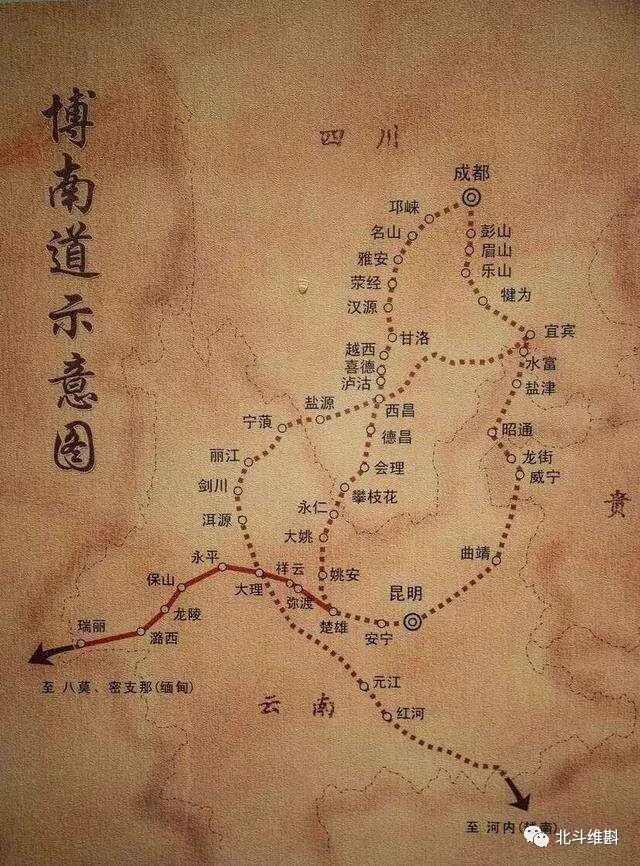 博南道示意图
四川
成都
邛崃
名山
彭山
眉山
雅安
乐山
荥经
犍为
汉源
宜宾
甘洛
越西
水富
喜德
泸沽
盐津
盐源
西昌
宁蒗
德昌
昭通
丽江
会理
龙街
剑川
攀枝花
威宁
贵
永仁
洱源
大姚
曲靖
永平
祥云
姚安
保山
大理
弥渡
昆明
龙陵
楚雄
安宁
瑞丽
潞西
至 八莫、密支那(缅甸)
元江
云南
红河
至 河内(越南)
北斗维斟